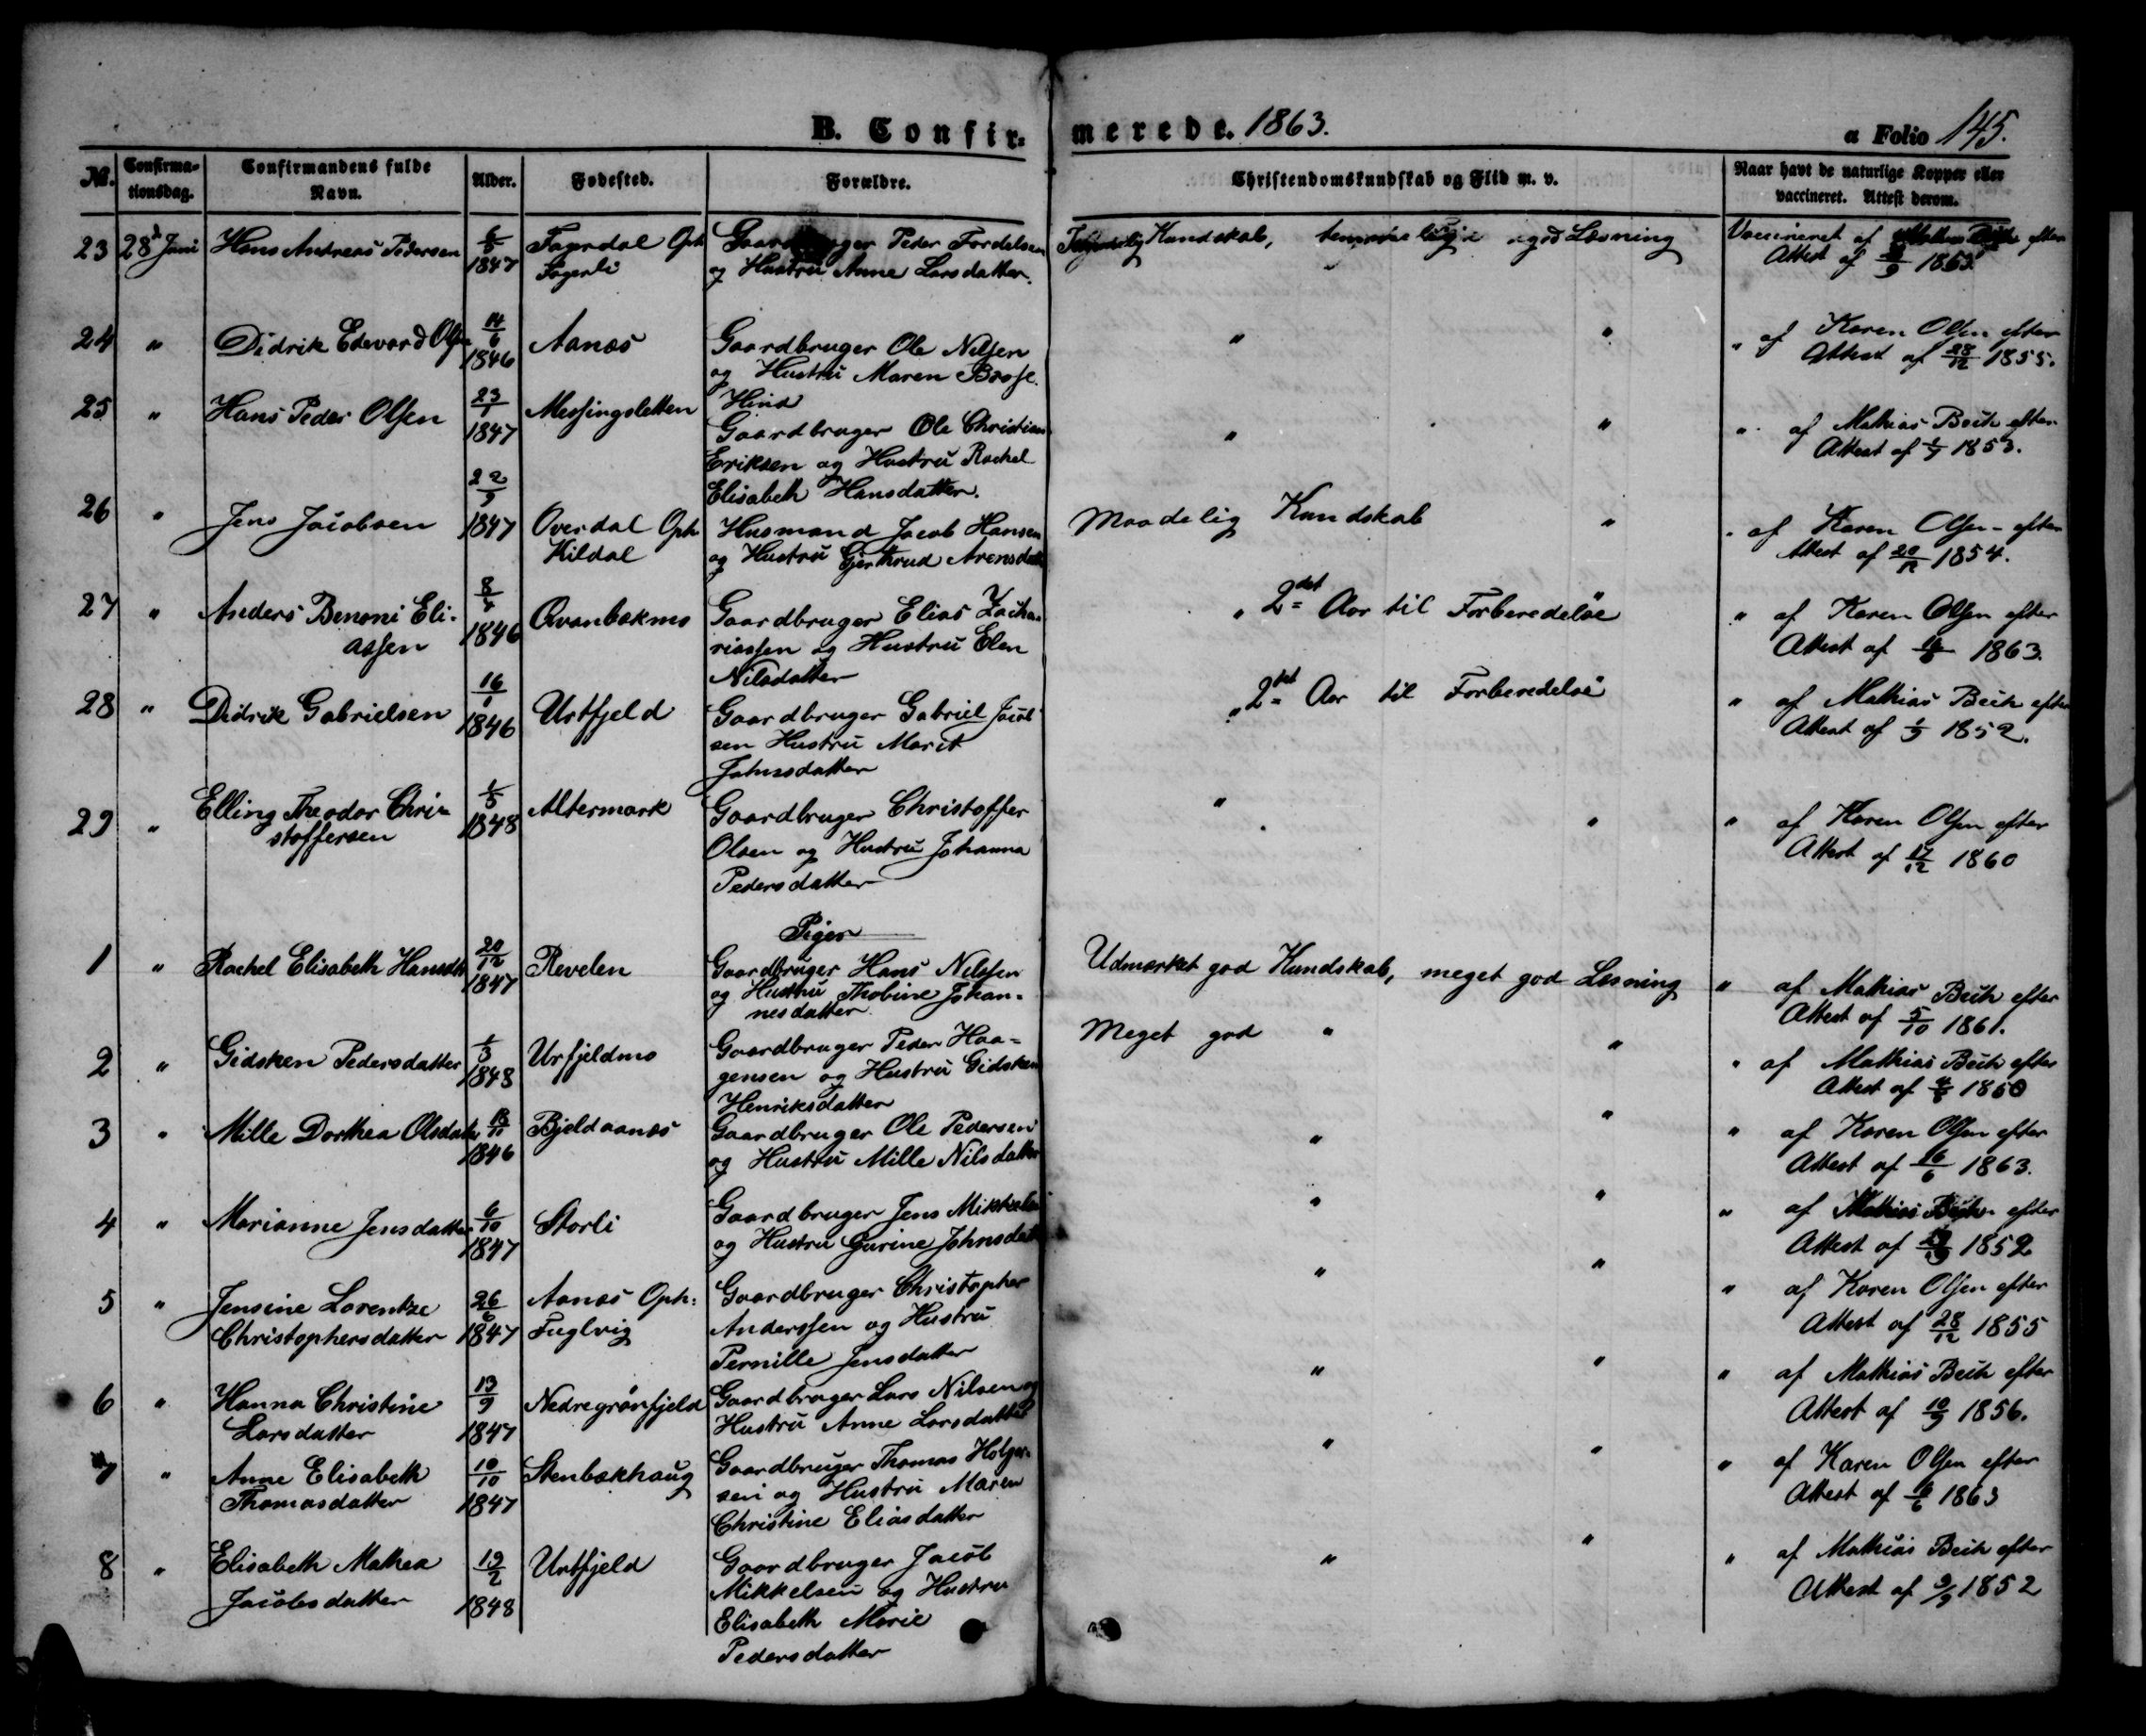 B. Confir- merede. 1863.
a Folio 145.
No. Confirma-tionsdag. Confirmandens fulde Navn. Alder. Fødested. Forældre. Christendomskundskab og Flid m. v. Naar havt de naturlige Kopper eller vaccineret. Attest derom.
23 28d Juni Hans Andreas Pedersen 1847
Gaardbruger Peder
og Hustru Anne Larsdatter.
Kundskab, god Læsning
Vaccineret af efter
Attest af 1863.
24 " Didrik Edevard Olsen 14/6 1846 Aanæs
Gaardbruger Ole Nilsen
og Hustru Maren
" "
" af Karen Olsen efter
Attest af 28/12 1855.
25 " Hans Peder Olsen 23/1 1847 Messingsletten
Hind
Gaardbruger Ole Christian
Eriksen og Hustru Rachel
Elisabeth Hansdatter.
" "
" af Mathias Bech efter
Attest af 1853.
26 " Jens Jacobsen 22/9 1847 Overdal Oph
Hildal
Husmand Jacob Hansen
og Hustru Gjerthrud Arensdatt
Maadelig Kundskab "
" af Karen Olsen efter
Attest af 20/12 1854.
27 " Anders Benoni Eli-
assen 1846 Qvanbækmo
Gaardbruger Elias Zacha-
riassen og Hustru Elen
Nilsdatter
" 2det Aar til Forberedelse "
" af Karen Olsen efter
Attest af 1863.
28 " Didrik Gabrielsen 16/1 1846 Urtfjeld
Gaardbruger Gabriel Jacob
sen Hustru Marit
Johnsdatter
" 2det Aar til Forberedelse
" af Mathias Bech efter
Attest af 1852.
29 " Elling Theodor Chri-
stoffersen 1/5 1848 Altermark
Gaardbruger Christoffer
Olsen og Hustru Johanna
Pedersdatter
" "
" af Karen Olsen efter
Attest af 17/12 1860
Piger
1 " Rachel Elisabeth Hansdtr 20/12 1847 Revelen
Gaardbruger Hans Nilssen
og Hustru Thobine Johan-
nesdatter.
Udmærket god Kundskab, meget god Læsning
" af Mathias Bech efter
Attest af 5/10 1861.
2 " Gidsken Pedersdatter 1/3 1848 Urfjeldmo
Gaardbruger Peder Haa-
gensen og Hustru Gidsken
Henriksdatter
Meget god " "
" af Mathias Bech efter
Attest af 1850
3 " Mille Dorthea Olsdatr 1846 Bjeldaanæs
Gaardbruger Ole Pedersen
og Hustru Mille Nilsdatter
" "
" af Karen Olsen efter
Attest af 16/6 1863.
4 " Marianne Jensdatter 6/10 1847 Storli
Gaardbruger Jens Mikkelsen
og Hustru Gurine Johnsdatt
" "
" af Mathias Bech efter
Attest af 1852
5 " Jensine Lorentze
Christophersdatter 26/6 1847 Aanæs Oph:
Fuglvig
Gaardbruger Christopher
Anderssen og Hustru
Pernille Jensdatter
" "
" af Karen Olsen efter
Attest af 28/12 1855
6 " Hanna Christine
Larsdatter 13/9 1847 Nedregrønfjeld
Gaardbruger Lars Nilsen og
Hustru Anne Larsdatter
" "
" af Mathias Bech efter
Attest af 10/9 1856.
7 " Anne Elisabeth
Thomasdatter 10/10 1847 Stenbækhaug
Gaardbruger Thomas Holger-
sen og Hustru Maren
Christine Eliasdatter
" "
" af Karen Olsen efter
Attest af 1863
8 " Elisabeth Mathea
Jacobsdatter 19/2 1848 Urtfjeld
Gaardbruger Jacob
Mikkelsen og Hustru
Elisabeth Marie
Pedersdatter
" "
" af Mathias Bech efter
Attest af 9/9 1852